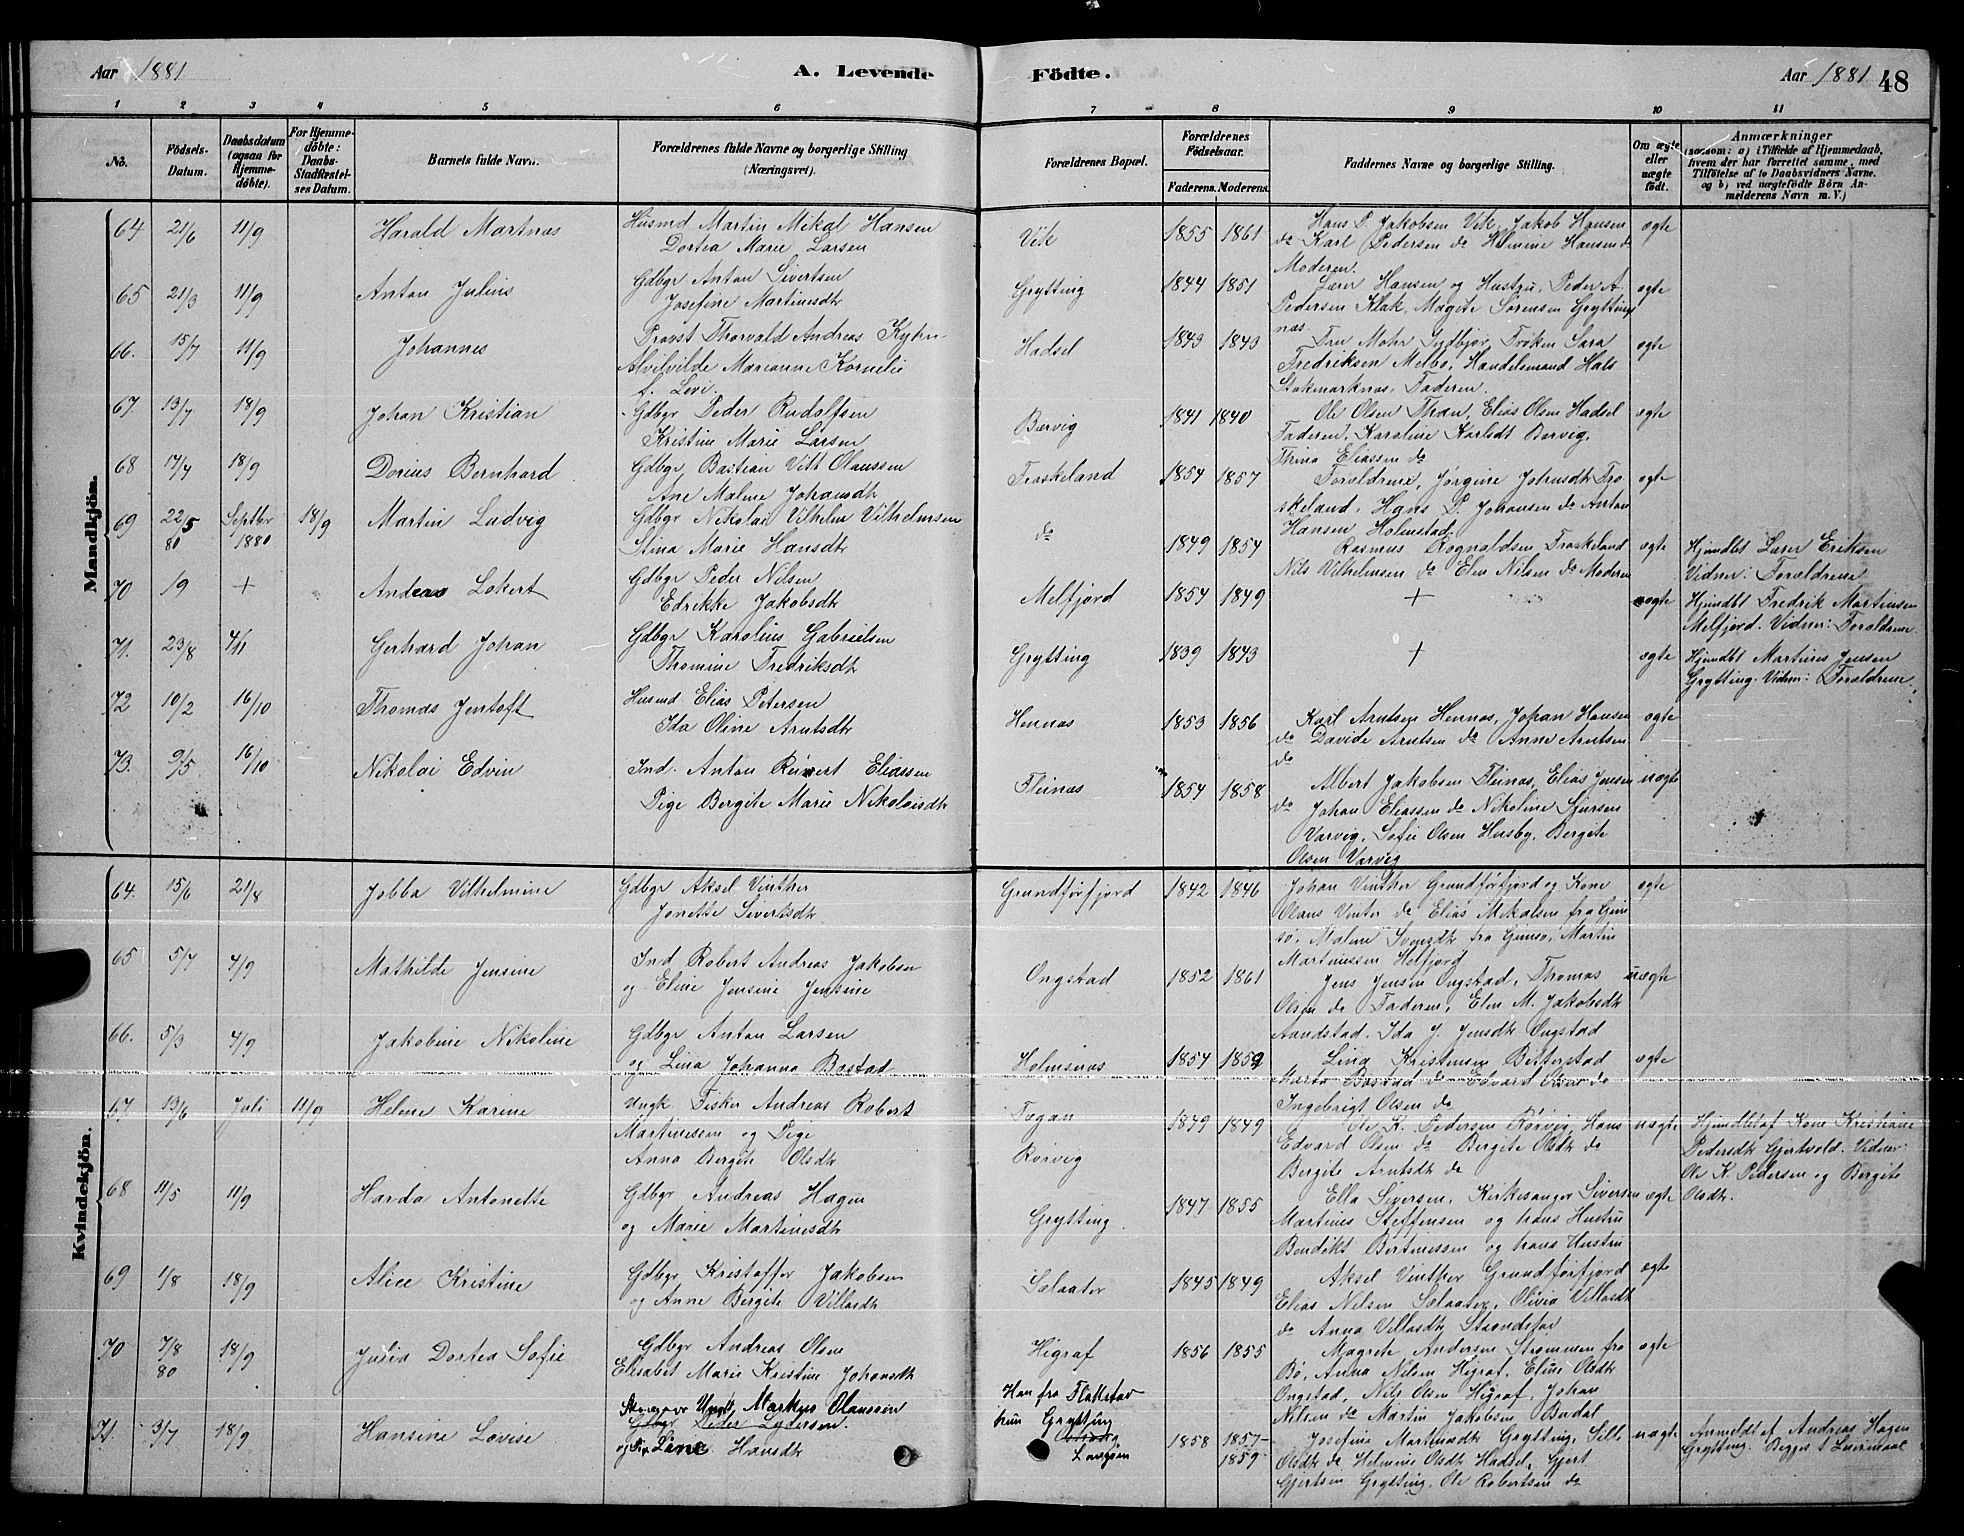 Aar 1881 A. Levende Födte. Aar 1881 48
1 2 3 4 5 6 7 8 9 10 11
No. Födsels-Datum. Daabsdatum (ogsaa for Hjemme-döbte). For Hjemme-döbte: Daabs-Stadfæstel-ses Datum. Barnets fulde Navn. Forældrenes fulde Navne og borgerlige Stilling (Næringsvei). Forældrenes Bopæl. Forældrenes Födselsaar. Faderens. Moderens. Faddernes Navne og borgerlige Stilling. Om ægte eller uægte födt. Anmærkninger (saasom: a) i Tilfælde af Hjemmedaab, hvem der har forrettet samme, med Tilföielse af to Daabsvidners Navne, og b) ved uægtefödte Börn An-melderens Navn m. V.)
Mandkjön.
64 21/6 11/9 Harald Martnas Husmd Martin Mikal Hansen Vik 1855 1861 Hans P. Jakobsen Vik, Jakob Hansen ægte
Dortea Marie Larsen do Karl Pedersen do Helmine Hansen do
Moderen.
65 21/3 11/9 Anton Julius Gdbgr Anton Sivertsen Grytting 1844 1851 Lærer Hansen og Hustru, Peder A. ægte
Josefine Martinisdtr Pedersen Klak, Magite Sørensen Grytting
næs.
66. 15/7 11/9 Johannes Provst Thorvald Andreas Kyhn Hadsel 1843 1843 Fru Mohr Sydbjør, Frøken Sara ægte
Alvilvilde Marianne Kornelie Fredriksen Melbo, Handelsmand Hals
f. Levi. Stokmarknæs, Faderen.
67. 13/7 18/9 Johan Kristian Gdbgr Peder Rudolfsen Børvig 1841 1840 Ole Olsen Thon, Elias Olsen Hadsel ægte
Kristine Marie Larsen Faderen, Karoline Karlsdt Børvig,
Thina Eliassen do
68 14/4 18/9 Dorius Bernhard Gdbgr Bastian Vitt Olaussen Froskeland 1854 1857 Forældrene, Jørgine Johnsdtr Fro- ægte
Ane Malene Johansdtr skeland, Hans P. Johansen do Anton
Hansen Holmstad.
69 22/5 80 Septbr 1880 18/9 Martin Ludvig Gdbgr Nikolai Vilhelm Vilhelmsen do 1849 1854 Rasmus Rognaldsen Froskeland ægte Hjmdbt Lærer Eriksen
Stina Marie Hansdtr Nils Vilhelmsen do Elen Nilsen do Moderen Vidner: Forældrene
70 19 + Andreas Lokert Gdbgr Peder Nilsen Melfjord 1854 1849 + ægte Hjmdbt Fredrik Martinsen
Edrikke Jakobsdtr Melfjord. Vidner: Forældrene.
71. 23/8 4/11 Gerhard Johan Gdbgr Karolius Gabrielsen Grytting 1839 1843 + ægte Hjmdbt Martinus Jensen
Thomine Fredriksdtr Grytting. Vidner: Forældrene.
72 10/2 16/10 Thomas Jentoft Husmd Elias Petersen Hennæs 1853 1856 Karl Arntsen Hennæs, Johan Hansen ægte
Ida Oline Arntsdtr do Davide Arntsen do Anne Arntsen
do
73. 9/5 16/10 Nikolai Edvin Ind. Anton Reinert Eliassen Fleinæs 1854 1858 Albert Jakobsen Fleinæs, Elias Jensen uægte
Pige Bergite Marie Nikolaisdtr do Johan Eliassen do Nikoline Sjursen
Varvig, Sofie Olsen Husby, Bergite
Olsen Varvig
Kvindekjön.
64. 15/6 21/8 Jobba Vilhelmine Gdbgr Aksel Vinther Grundførfjord 1842 1846 Johan Vinther Grundførfjord og Kone ægte
Jonette Sivertsdtr Olaus Vinter do Elias Mikalsen fra Gim
sø, Malene Svensdtr fra Gimsø, Martin
Martinussen Melfjord
65 5/7 4/9 Mathilde Jensine Ind Robert Andreas Jakobsen Ongstad 1852 1861 Jens Jensen Ongstad, Thomas uægte
og Eline Jensine Jensine Olsen do Faderen, Elen M. Jakobsdtr
Aandstad, Ida J. Jensdtr Ongstad
66. 5/3 4/9 Jakobine Nikoline Gdbgr Anton Larsen Holmsnæs 1854 1859 Lina Kristensen Bitterstad ægte
og Lina Johanna Bostad Marta Bostad do Edvard Olsen do
Ingebrigt Olsen do
67. 13/6 Juli 11/9 Helene Karine Ungk Fisker Andreas Robert Fogan 1849 1849 Ole K. Pedersen Rørvig, Hans uægte Hjmdbt af Kone Kristiane
Martinussen og Pige Edvard Olsen do Bergite Olsdtr do Pedersdtr Gjertvold. Vidner:
Anna Bergite Olsdtr Rørvig Bergite Arntsdtr do Ole K. Pedersen og Bergite
Olsdtr.
68 11/5 11/9 Harda Antonette Gdbgr Andreas Hagen Grytting. 1847 1855 Ella Siversen, Kirkesanger Siversen ægte
og Marie Martinisdtr Martinus Steffensen og hans Hustru
Bendikt Bertinussen og hans Hustru
69 1/8 18/9 Alice Kristine Gdbgr Kristoffer Jakobsen Sælaater 1845 1849 Aksel Vinther Grundførfjord ægte
og Anne Bergite Villasdtr Elias Nilsen Sælaater, Olivia Villasdtr
do Anna Villasdtr
70 7/8 80 18/9 Julia Dortea Sofie Gdbgr Andreas Olsen Higraf 1856 1855 Magrete Andersen Strømmen fra ægte
Elisabet Marie Kristine Johansdtr Bø, Anna Nilsen Higraf, Eline Olsdtr
Ongstad, Nils Olsen Higraf, Johan
Nilsen do Martin Jakobsen Budal
71. 3/7 18/9 Hansine Lovise Ungk, Markus Olaussen Han fra Flakstad
Gdbgr Peder Lydersen. hun Grytting
og Pige Line Hansdtr Langøen 1858 1857 1859 Josefine Martinsdtr Grytting, Sille uægte Anmeldt af Andreas Hagen
Olsdtr do Helmine Olsdtr Hadsel, Gjert Grytting. Begges 1 Leiermaal
Gjertsen Grytting, Ole Robertsen do